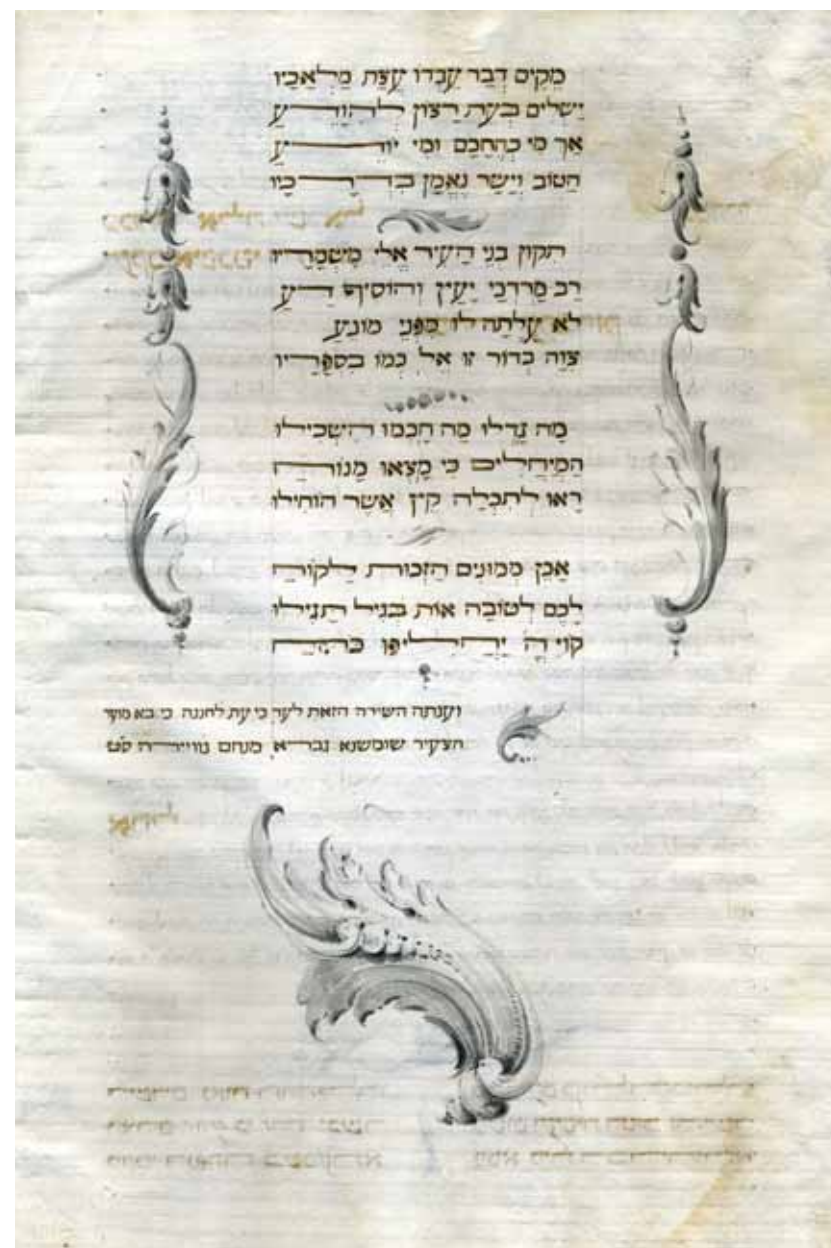 מקים דבר עבדו עצת מלאכיו
ישלים בעת רצון להודע
אך מי כהחכם ומי יודע
הטוב וישר נאמן בדרכיו
תקון בני העיר אלי משמריו
רב מרדכי יעיץ והוסיף דע
לא עלתה לו מפני מונע
צוה בדור זו אל כמו בספריו
מה גדלו מה חכמו השכילו
המיחלים כי מצאו מנורה
ראו לתכלה קץ אשר הוחילו
אכן ממונים הזכות
לכם לטובה אות בגיל תגילו
קוי יה יחליפו
וענתה השירה הזאת לעד כי עת לחננה כי בא מועד
הצעיר מנחם נוויירה סט